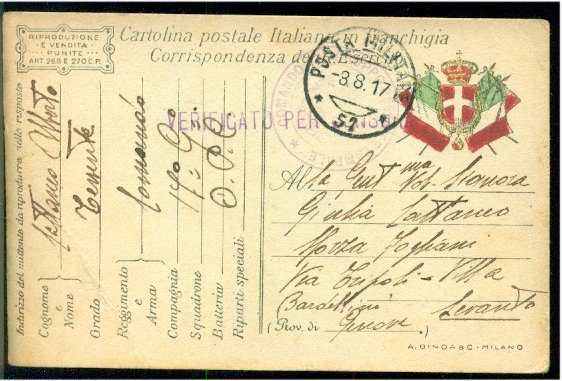 RIPRODUZIONE
E VENDITA
PUNITE
ART. 268 E 270 C.P.
Cartolina postale Italiana in franchigia
Corrispondenza del R. Esercito
POSTA MILITARE
-8.8.17
51
VERIFICATO PER CENSURA
Indirizzo del mittente da riprodurre nelle risposte
Cognome e Nome
Cattaneo Alberto
Grado
Tenente
Reggimento e Arma
Comando
Compagnia
Squadrone
Batteria
Riparti speciali
Alla Gent.ma Sig. Signora
Giulia Cattaneo
Via Tripoli - Villa
Levanto
(Prov. di Genova)
A. GINDA & C. - MILANO